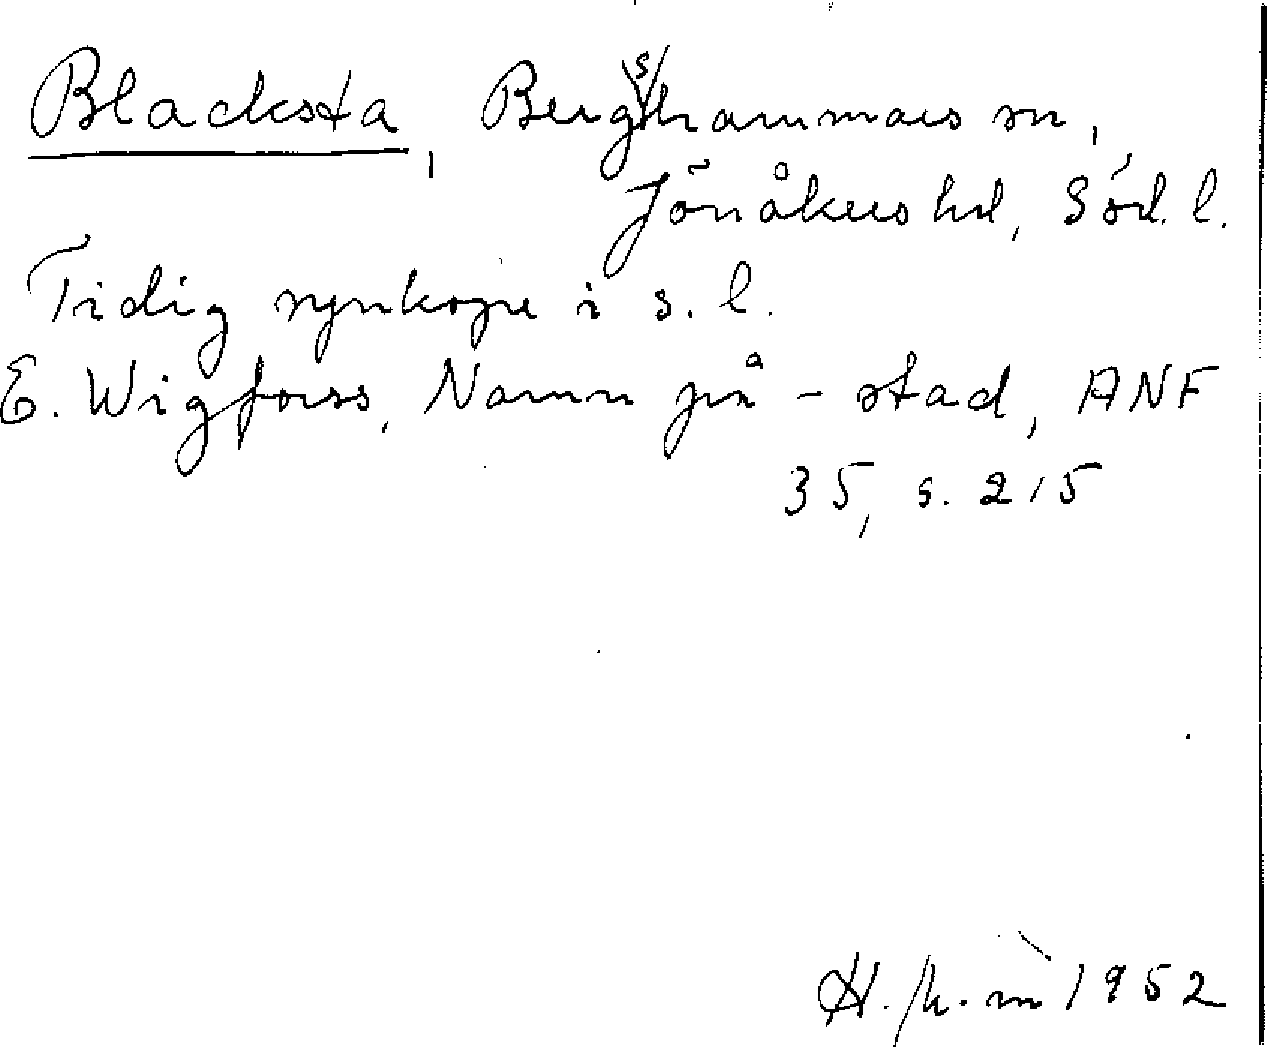 Blacksta, Bergshammars sn,
Jönåkers hd, Södl.
Tidig synkope i s.l.
E. Wigforss, Namn på -stad, ANF
35, s. 215
1952